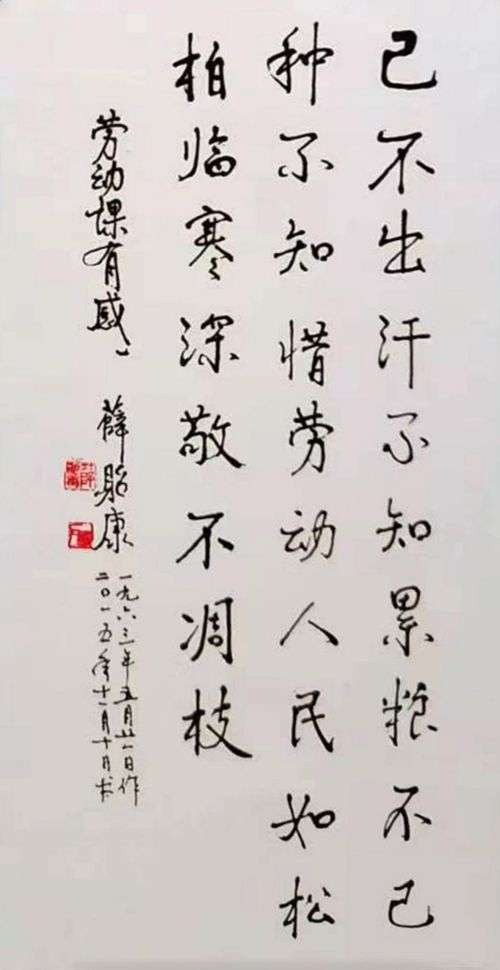 己不出汗不知累粮不己
种不知惜劳动人民如松
柏临寒深敬不凋枝
劳动课有感
薛贻康
一九六三年五月廿一日作
二〇一五年十一月十日书